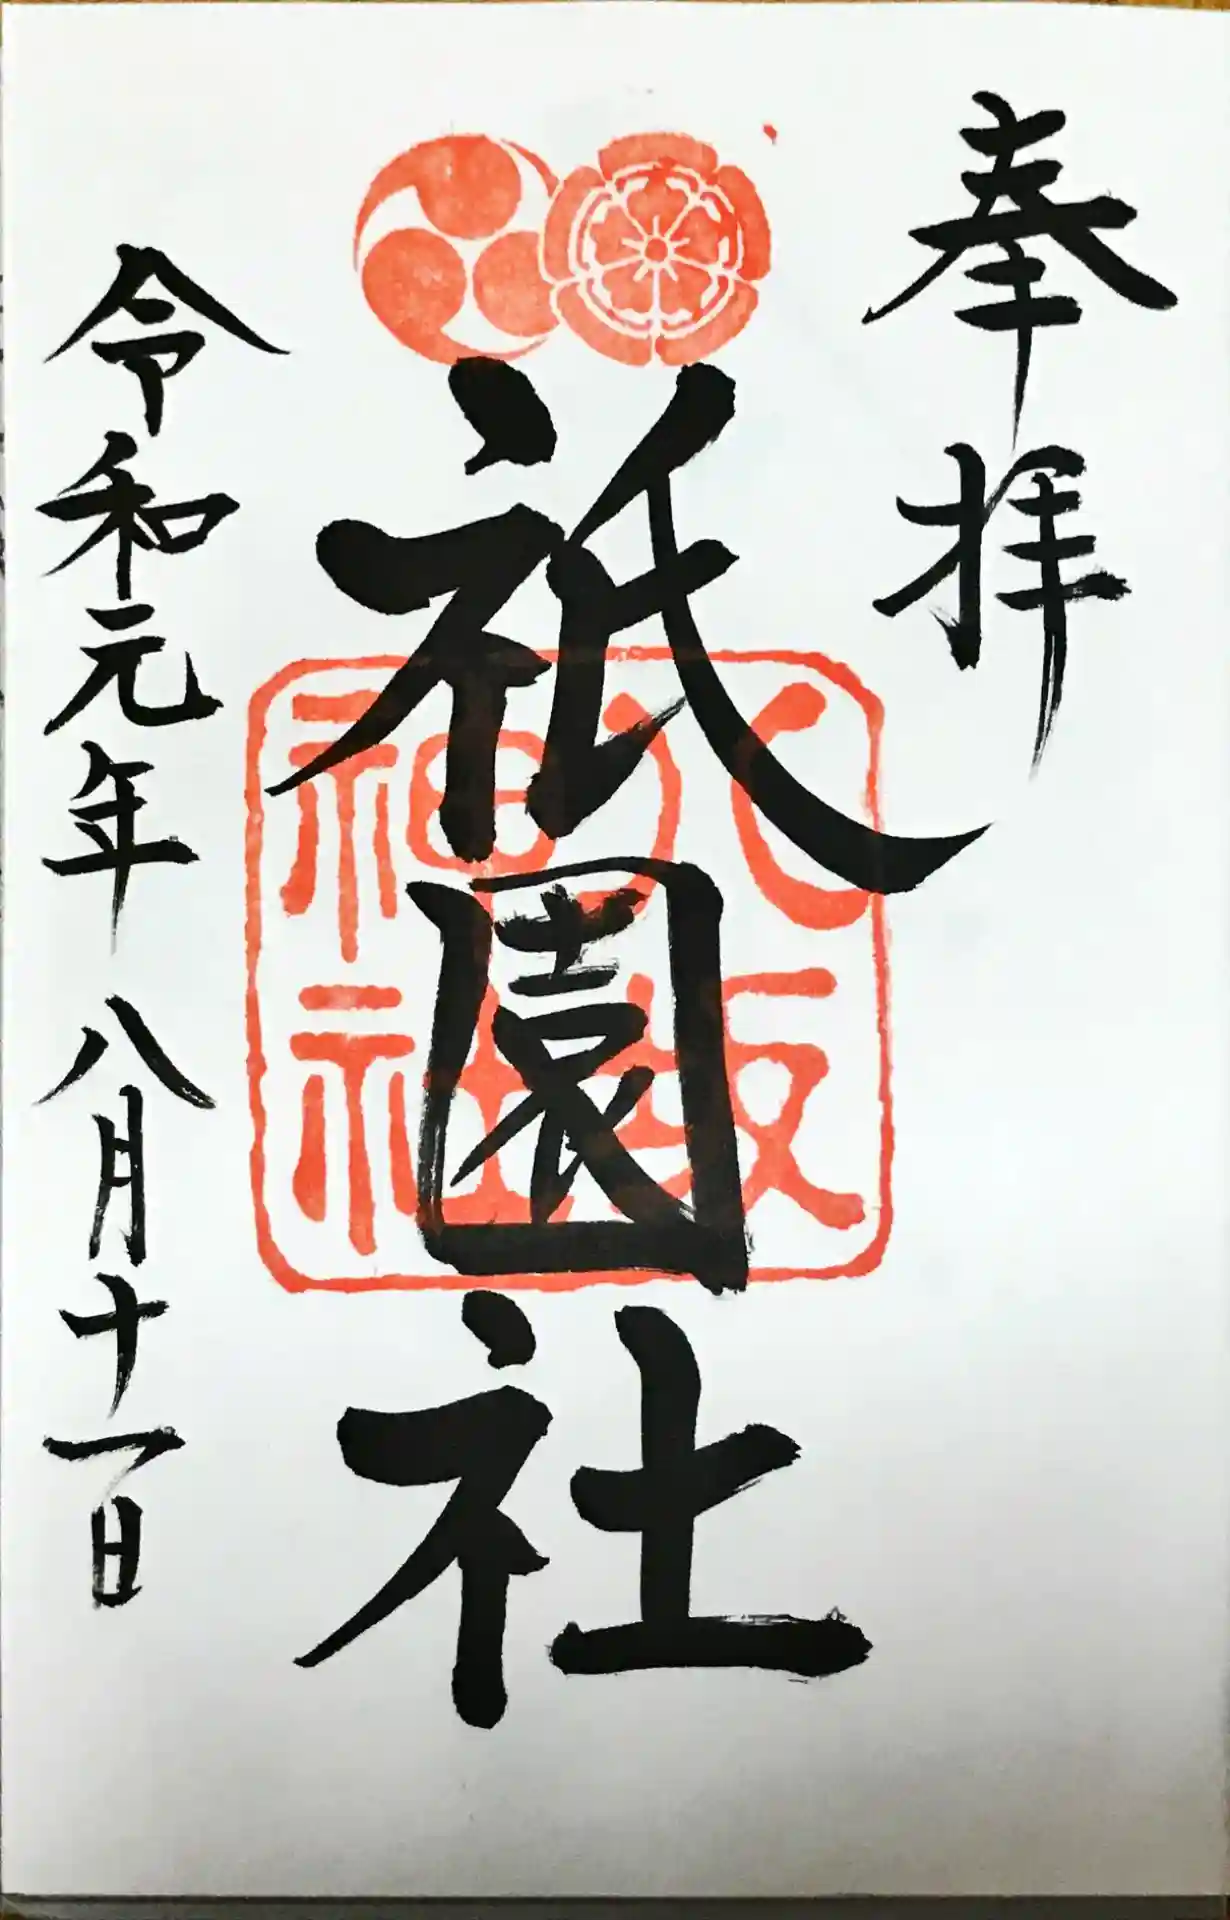 奉拝
祇園社
八坂神社
令和元年 八月十一日